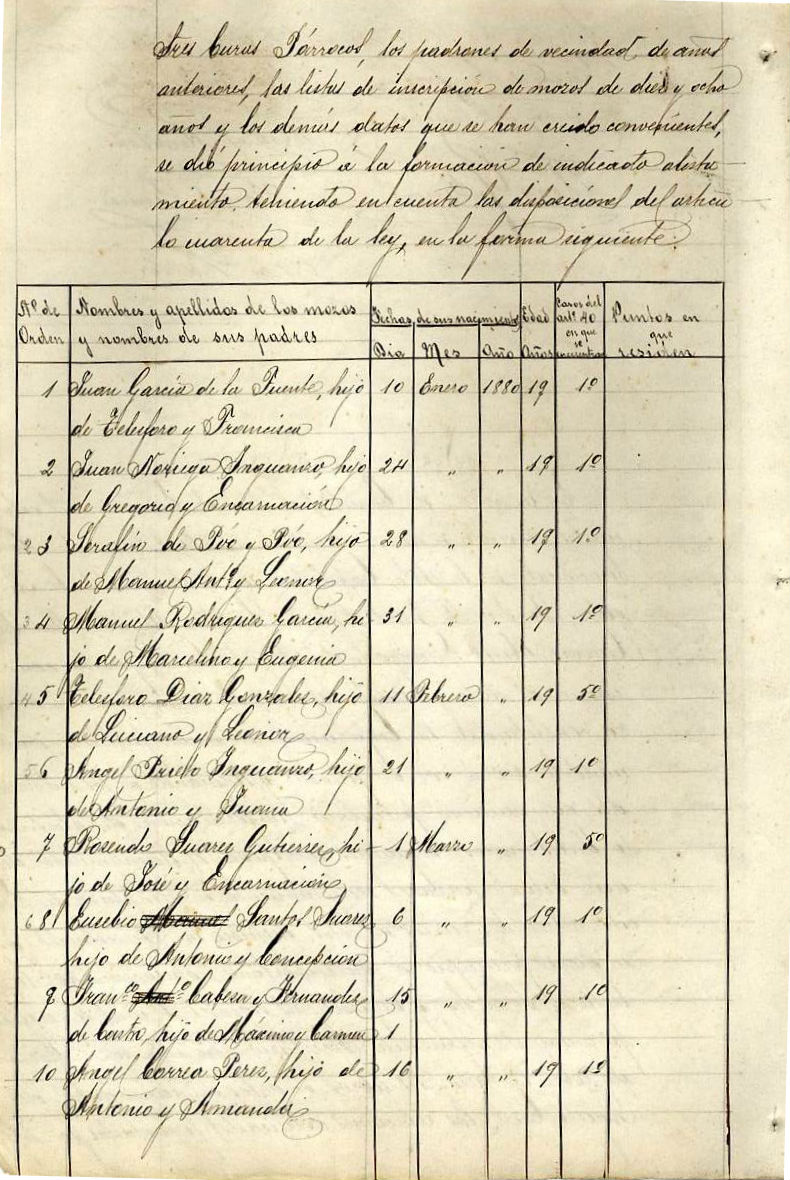 tres Curas Párrocos, los padrones de vecindad, de años
anteriores, las listas de inscripción de mozos de diez y ocho
años y los demás datos que se han creido convenientes,
se dió principio á la formación de indicado alista-
miento, teniendo en cuenta las disposicionel del articu-
lo cuarenta de la ley, en la forma siguiente:
Nº de Orden Nombres y apellidos de los mozos y nombres de sus padres Fechas de sus nacimientos Dia Mes Año Edad Años Casos del artº 40 en que se encuentran Puntos en que residen
1 Juan García de la Fuente, hijo 10 Enero 1880 19 1º
de Telesforo y Francisca
2 Juan Noriega Inguanzo, hijo 24 " " 19 1º
de Gregorio y Encarnación
2 3 Serafín de Póo y Póo, hijo 28 " " 19 1º
de Manuel Antº y Leonor
3 4 Manuel Rodriguez García, hi 31 " " 19 1º
jo de Marcelino y Eugenia
4 5 Telesforo Diaz Gonzales, hijo 11 Febrero " 19 5º
de Luciano y Leonor
5 6 Angel Prieto Inguanzo, hijo 21 " " 19 1º
de Antonio y Juana
7 Rosendo Suarez Gutierrez, hi- 1 Marzo " 19 5º
jo de José y Encarnación
6 8 Eusebio Santos Suarez 6 " " 19 1º
hijo de Antonio y Concepción
9 Franco Cabesa y Fernandes 15 " " 19 1º
de Castro, hijo de Máximo y Carmen 1
10 Angel Correa Perez, hijo de 16 " " 19 1º
Antonio y Amanda